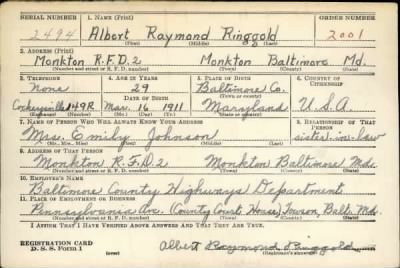 SERIAL NUMBER 1. NAME (Print) ORDER NUMBER
2494 Albert Raymond Ringgold 2001
(First) (Middle) (Last)
2. ADDRESS (Print)
Monkton R.F.D.2 Monkton Baltimore Md.
(Number and street or R.F.D. number) (Town) (County) (State)
3. TELEPHONE 4. AGE IN YEARS 5. PLACE OF BIRTH 6. COUNTRY OF CITIZENSHIP
None 29 Baltimore Co.
DATE OF BIRTH (Town or county)
Cockeysville 149R Mar. 16 1911 Maryland U.S.A.
(Exchange) (Number) (Mo.) (Day) (Yr.) (State or country)
7. NAME OF PERSON WHO WILL ALWAYS KNOW YOUR ADDRESS 8. RELATIONSHIP OF THAT PERSON
Mrs. Emily Johnson sister-in-law
(Mr., Mrs., Miss) (First) (Middle) (Last)
9. ADDRESS OF THAT PERSON
Monkton R.F.D2 Monkton Baltimore Md.
(Number and street or R.F.D. number) (Town) (County) (State)
10. EMPLOYER'S NAME
Baltimore County Highways Department
11. PLACE OF EMPLOYMENT OR BUSINESS
Pennsylvania Ave. (County Court House) Towson, Balt. Md.
(Number and street or R.F.D. number) (Town) (County) (State)
I AFFIRM THAT I HAVE VERIFIED ABOVE ANSWERS AND THAT THEY ARE TRUE.
REGISTRATION CARD
D. S. S. Form 1 Albert Raymond Ringgold
(Registrant's signature)